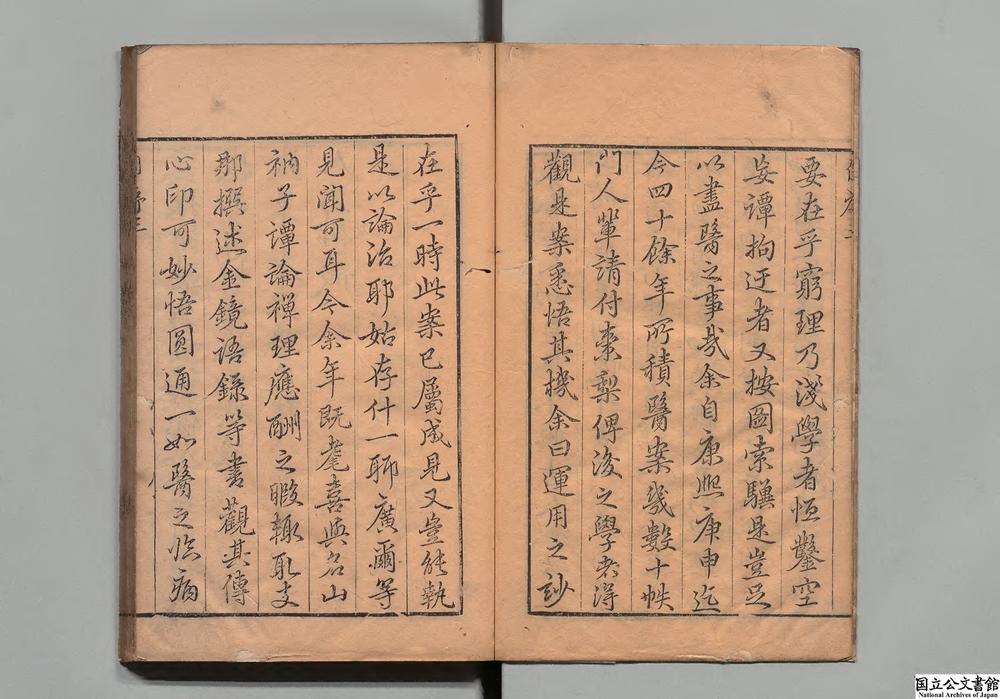 要在乎窮理乃淺學者恒鑿空
妄譚拘迂者又按圖索驥是豈足
以盡醫之事哉余自康熙庚申迄
今四十餘年所積醫案幾數十帙
門人輩請付棗梨俾後之學者得
觀是案悉悟其機余曰運用之妙
在乎一時此案已屬成見又豈能執
是以論治耶姑存什一聊廣爾等
見聞可耳今余年既耄喜與名山
衲子譚論禪理應酬之暇輒取支
那撰述金鏡語錄等書觀其傳
心印可妙悟圓通一如醫之臨病
国立公文書館
National Archives of Japan